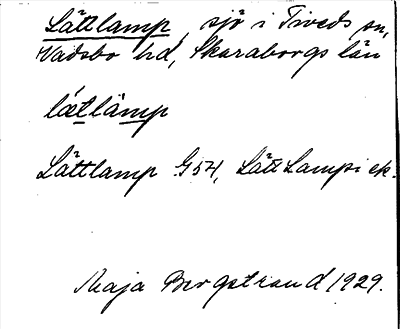 Lättlamp, sjö i Tiveds sn,
Vadsbo hd, Skaraborgs län
lætlamp
Lättlamp G 54, Lätt Lampi ek.
Maja Bergstrand 1929.